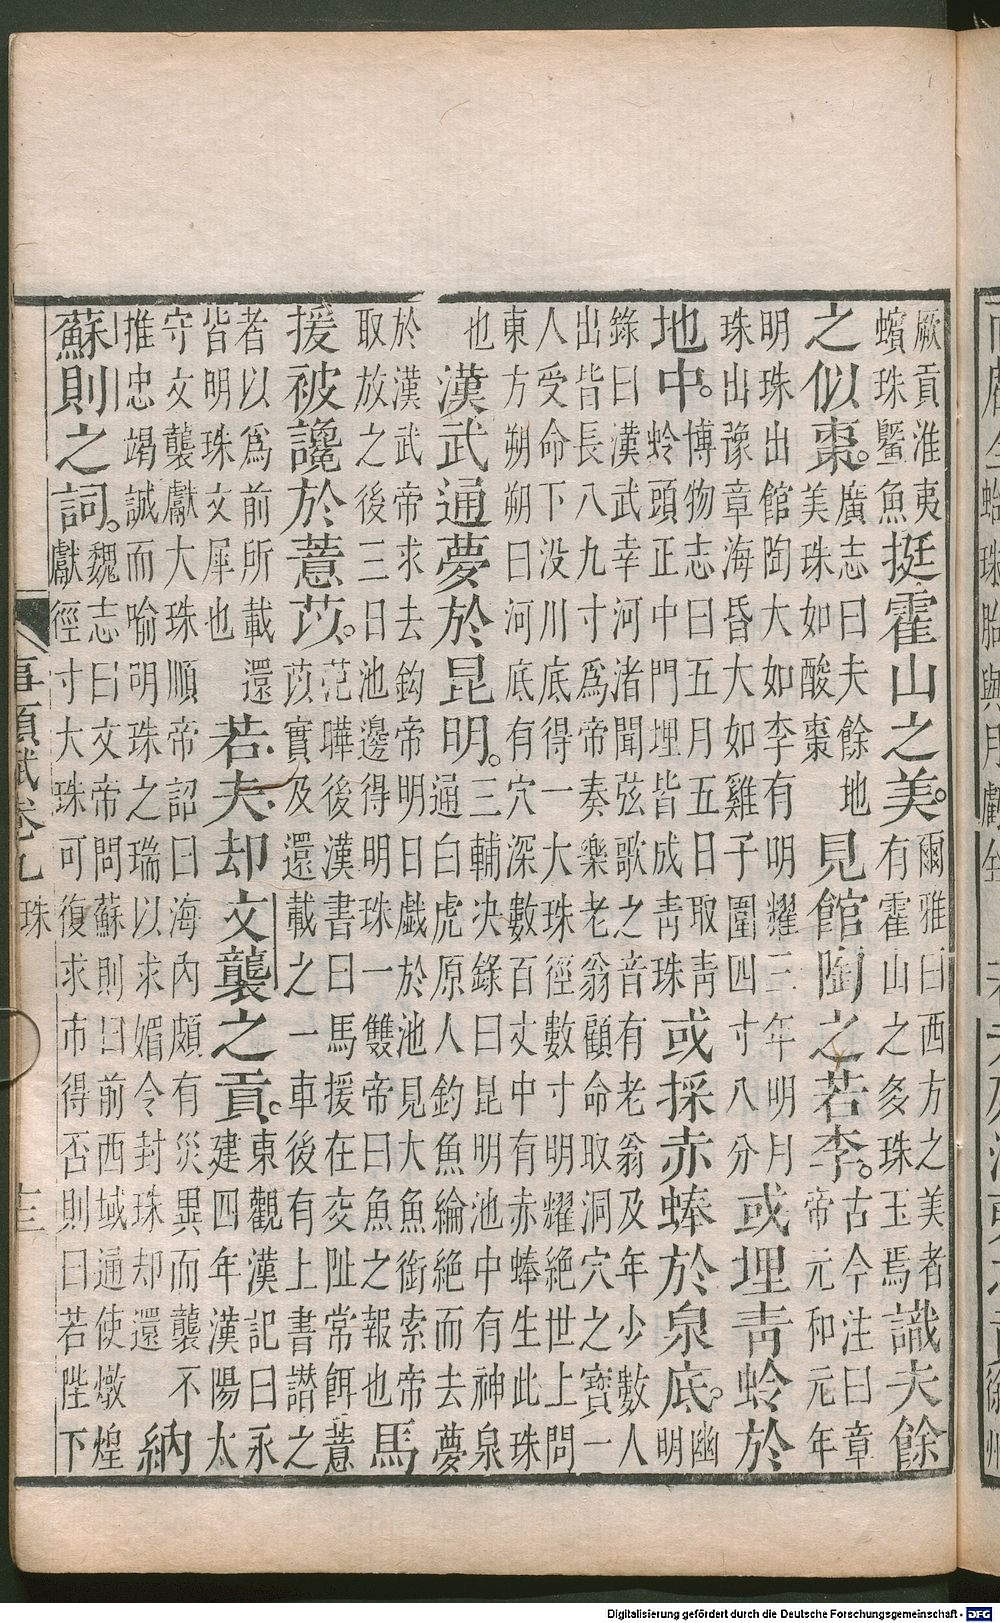 厥貢淮夷蠙珠曁魚挺霍山之美。爾雅曰西方之美者有霍山之多珠玉焉識夫餘
之似棗。廣志曰夫餘地美珠如酸棗見館陶之若李。古今注曰章帝元和元年
明珠出館陶大如李有明耀三年明月珠出豫章海昏大如雞子圍四寸八分或埋靑蛉於
地中。博物志曰五月五日取靑蛉頭正中門埋皆成靑珠或採赤蜯於泉底。幽明
錄曰漢武幸河渚聞弦歌之音有老翁及年少數人出皆長八九寸爲帝奏樂老翁顧命取洞穴之寳一
人受命下没川底得一大珠徑數寸明耀絶世上問東方朔朔曰河底有穴深數百丈中有赤蜯生此珠
也漢武通夢於昆明。三輔决錄曰昆明池中有神泉通白虎原人釣魚綸絶而去夢
於漢武帝求去鈎帝明日戲於池見大魚銜索帝取放之後三日池邊得明珠一雙帝曰魚之報也馬
援被讒於薏苡。范曄後漢書曰馬援在交阯常餌薏苡實及還載之一車後有上書譖之
者以爲前所載還皆明珠文犀也若夫却文襲之貢。東觀漢記曰永建四年漢陽太
守文襲獻大珠順帝詔曰海內頗有災異而襲不推忠竭誠而喻明珠之瑞以求媚令封珠却還納
蘇則之詞。魏志曰文帝問蘇則曰前西域通使燉煌獻徑寸大珠可復求市得否則曰若陛下
事類賦卷九 珠 十三
Digitalisierung gefördert durch die Deutsche Forschungsgemeinschaft - DFG